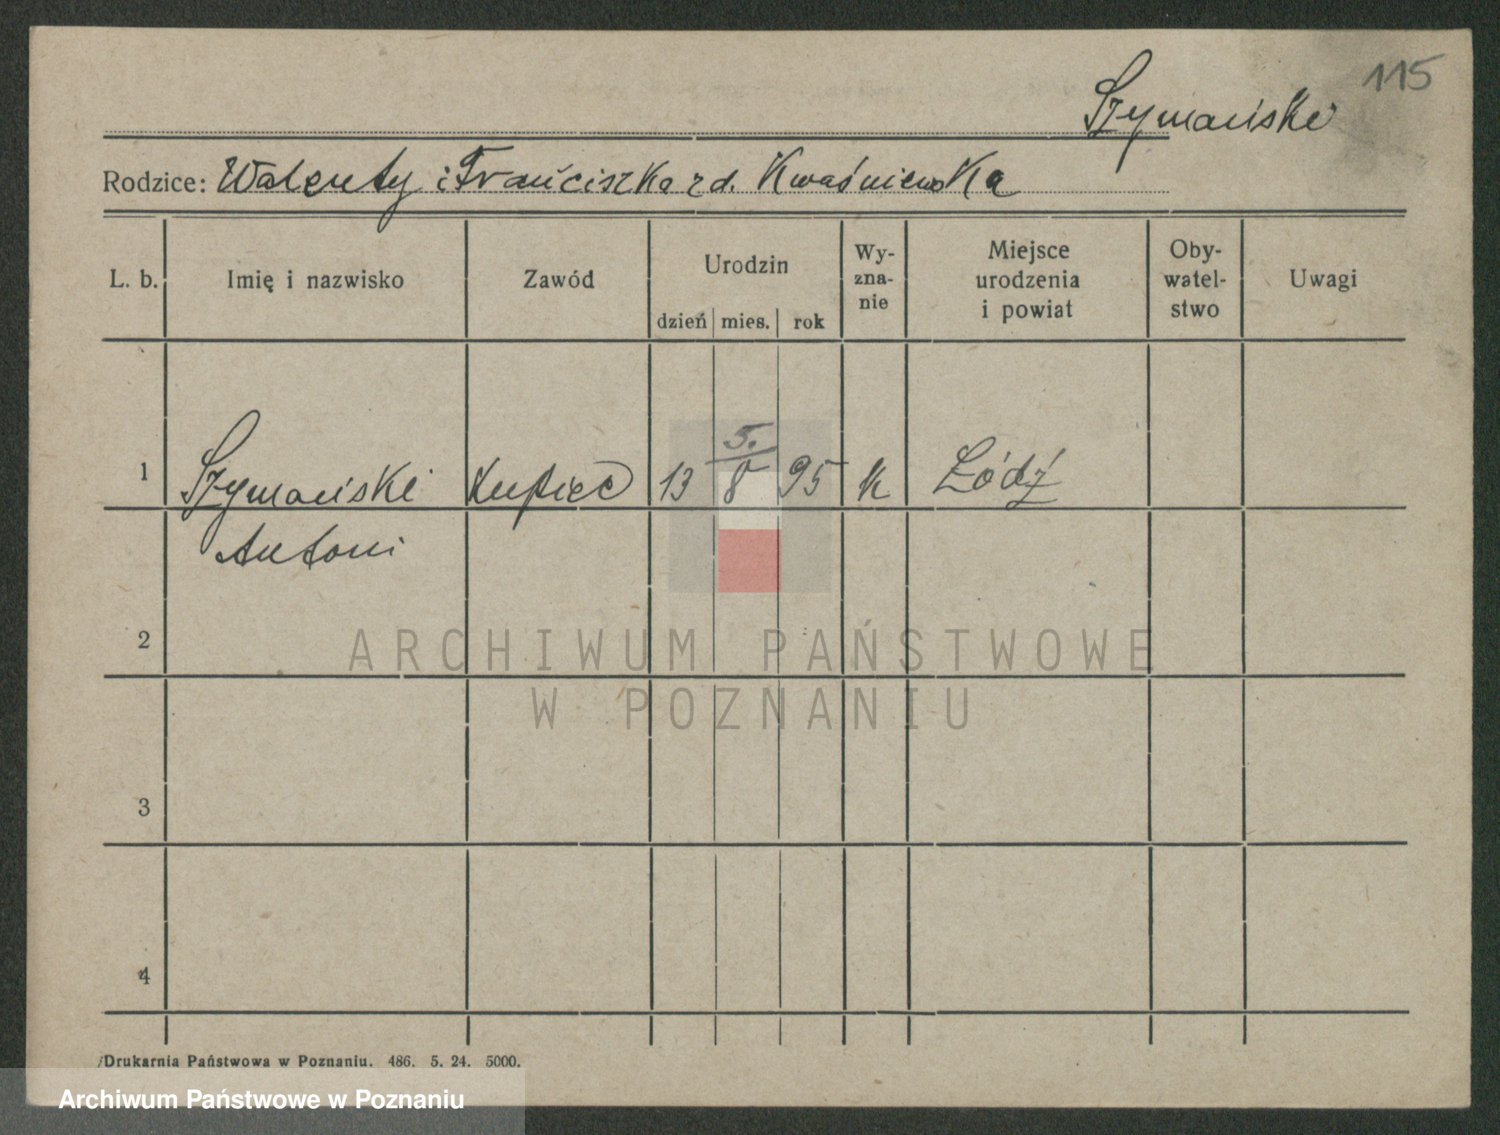 115
Szymański
Rodzice: Walenty i Franciszka z d. Kwaśniewska
L. b.
Imię i nazwisko
Zawód
Urodzin
dzień mies. rok
Wy-
zna-
nie
Miejsce
urodzenia
i powiat
Oby-
watel-
stwo
Uwagi
5.
1 Szymański Kupiec 13 8 95 k Łódź
Antoni
2
3
4
ARCHIWUM PAŃSTWOWE
W POZNANIU
Drukarnia Państwowa w Poznaniu. 486. 5. 24. 5000.
Archiwum Państwowe w Poznaniu